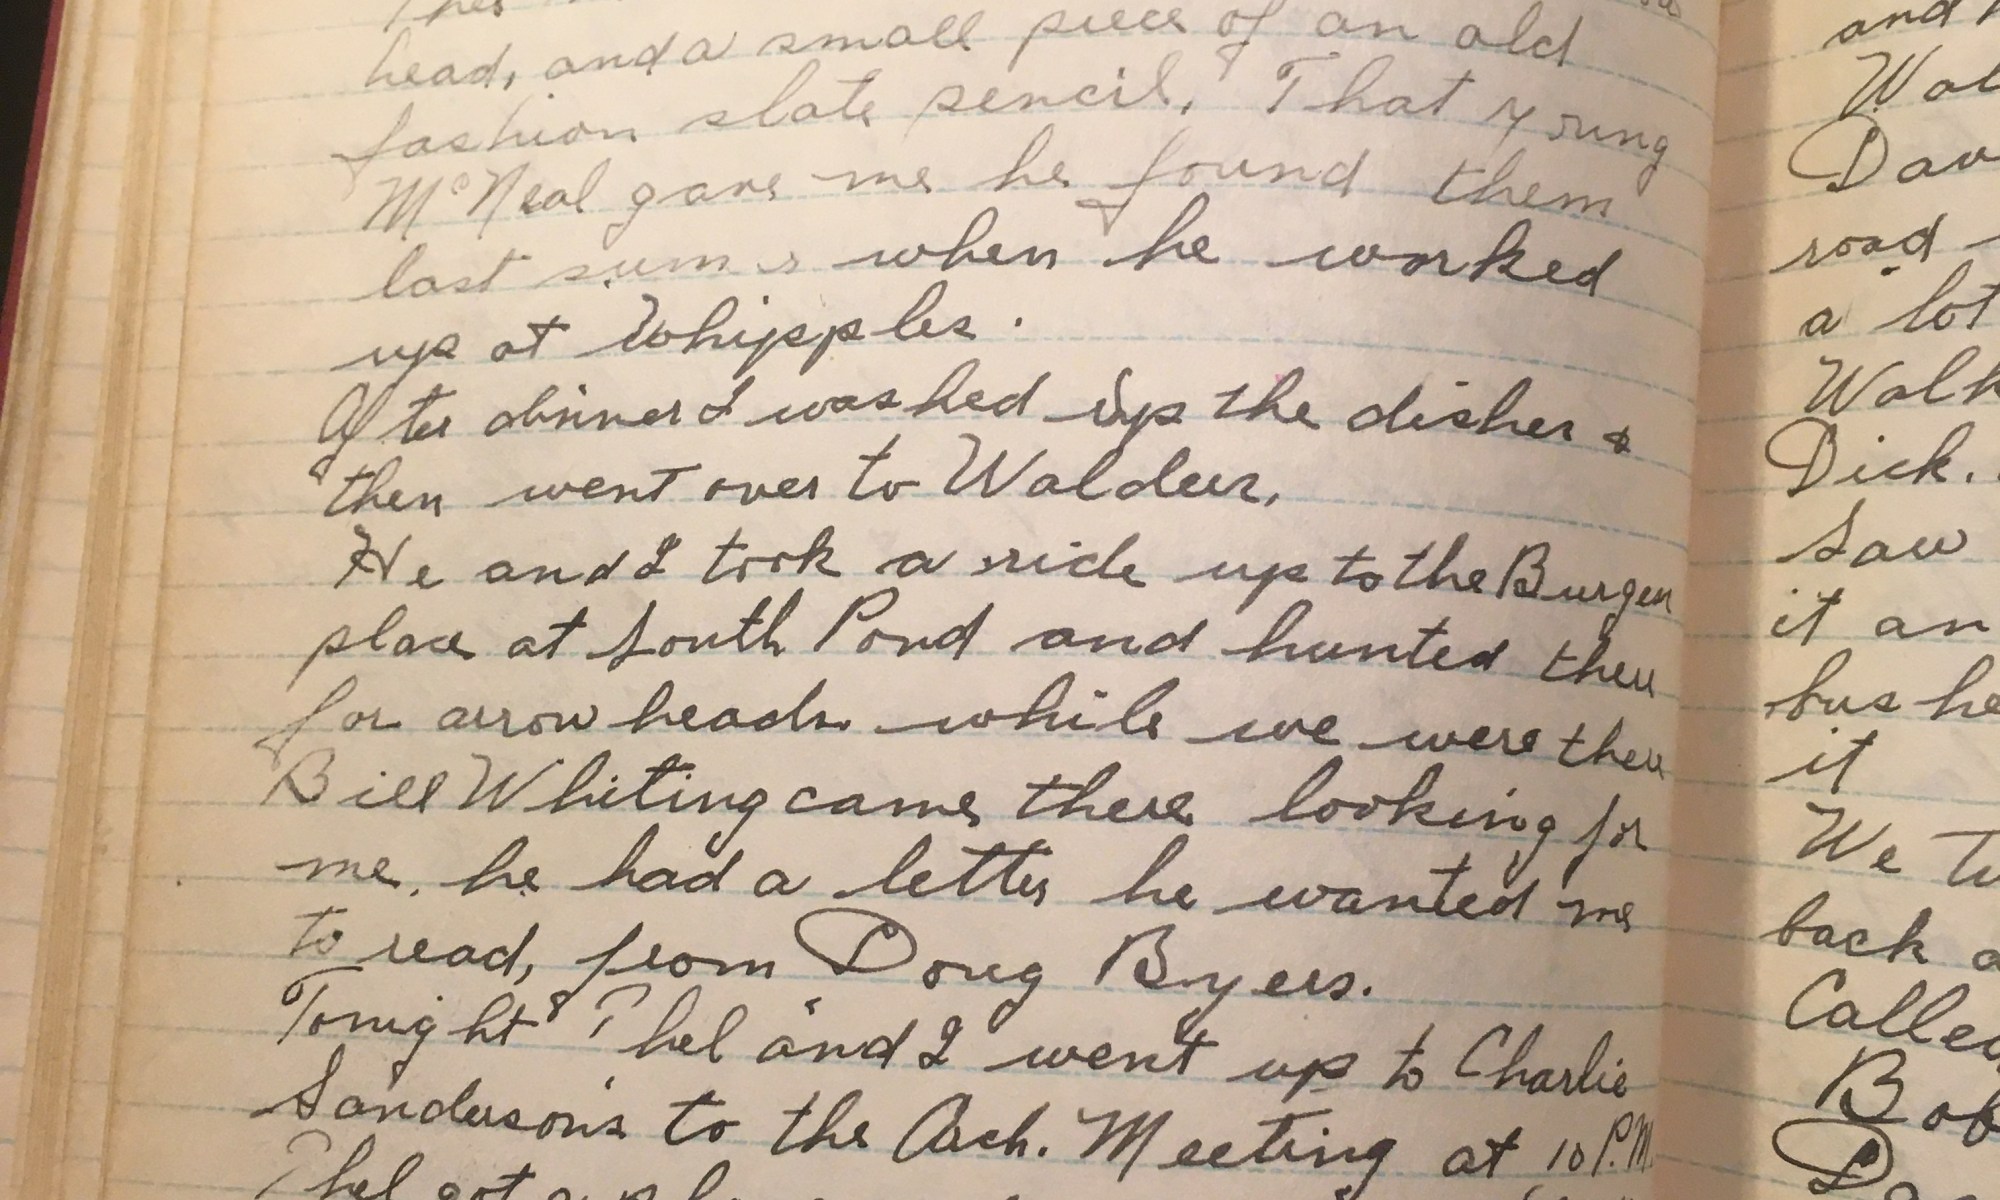 head, and a small piece of an old
fashion slate pencil, That young
McNeal gave me he found them
last when he worked
up at Whipples.
After dinner I washed up the dishes &
then went over to
He and I took a ride up to the Burgen
place at South Pond and hunted there
for arrow heads while we were there
Bill Whiting came there looking for
me, he had a letter he wanted me
to read, from Doug Byers.
Tonight Thel and I went up to Charlie
Sanderson's to the Arch. Meeting at 10 P.M.
Thel got a
and
Wal
Dav
road
a lot
Walk
Dick.
Saw
it an
bus he
it
We
back a
Called
Bob